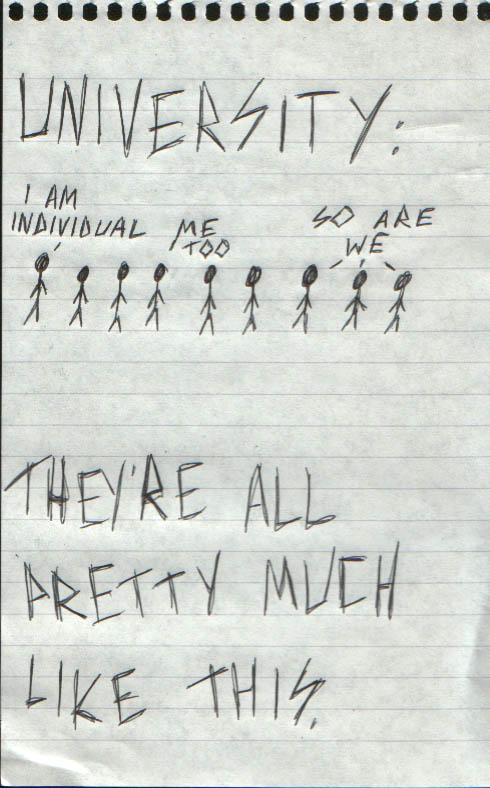 UNIVERSITY:
I AM
INDIVIDUAL
ME
TOO
SO ARE
WE
THEY'RE ALL
PRETTY MUCH
LIKE THIS.